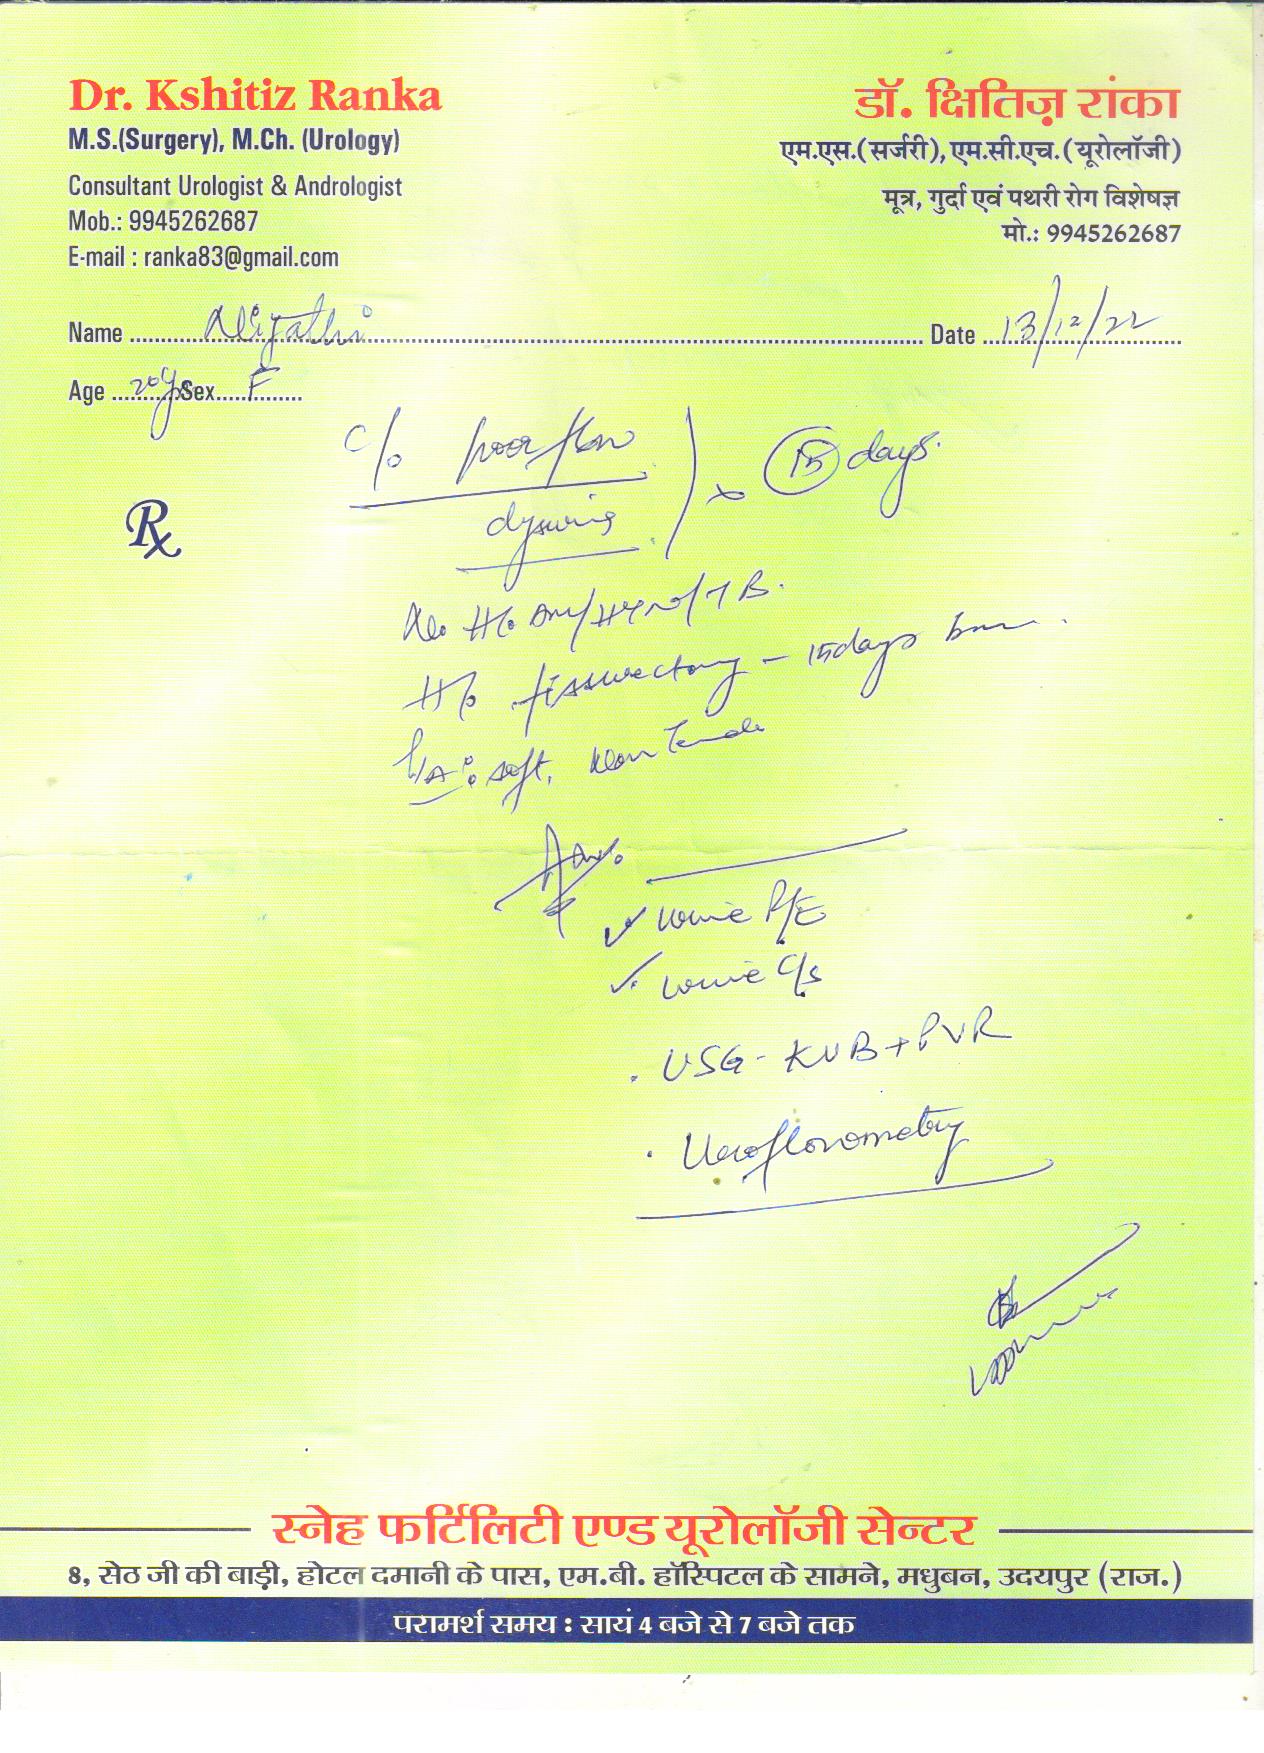 Dr. Kshitiz Ranka
M.S.(Surgery), M.Ch. (Urology)
Consultant Urologist & Andrologist
Mob.: 9945262687
E-mail : ranka83@gmail.com
डॉ. क्षितिज़ रांका
एम.एस.(सर्जरी), एम.सी.एच.(यूरोलॉजी)
मूत्र, गुर्दा एवं पथरी रोग विशेषज्ञ
मो.: 9945262687
Name Date 13/12/22
Age 20y Sex F
Rx
C/o poor flow
dysuria x 15 days.
No H/o DM/HTN/TB.
H/o fissurectomy - 15 days
P/A: soft, Non Tende
Adv:
✓ Urine R/E
✓ Urine C/s
. USG - KUB + PVR
. Uroflowmetry
स्नेह फर्टिलिटी एण्ड यूरोलॉजी सेन्टर
8, सेठ जी की बाड़ी, होटल दमानी के पास, एम.बी. हॉस्पिटल के सामने, मधुबन, उदयपुर (राज.)
परामर्श समय : सायं 4 बजे से 7 बजे तक